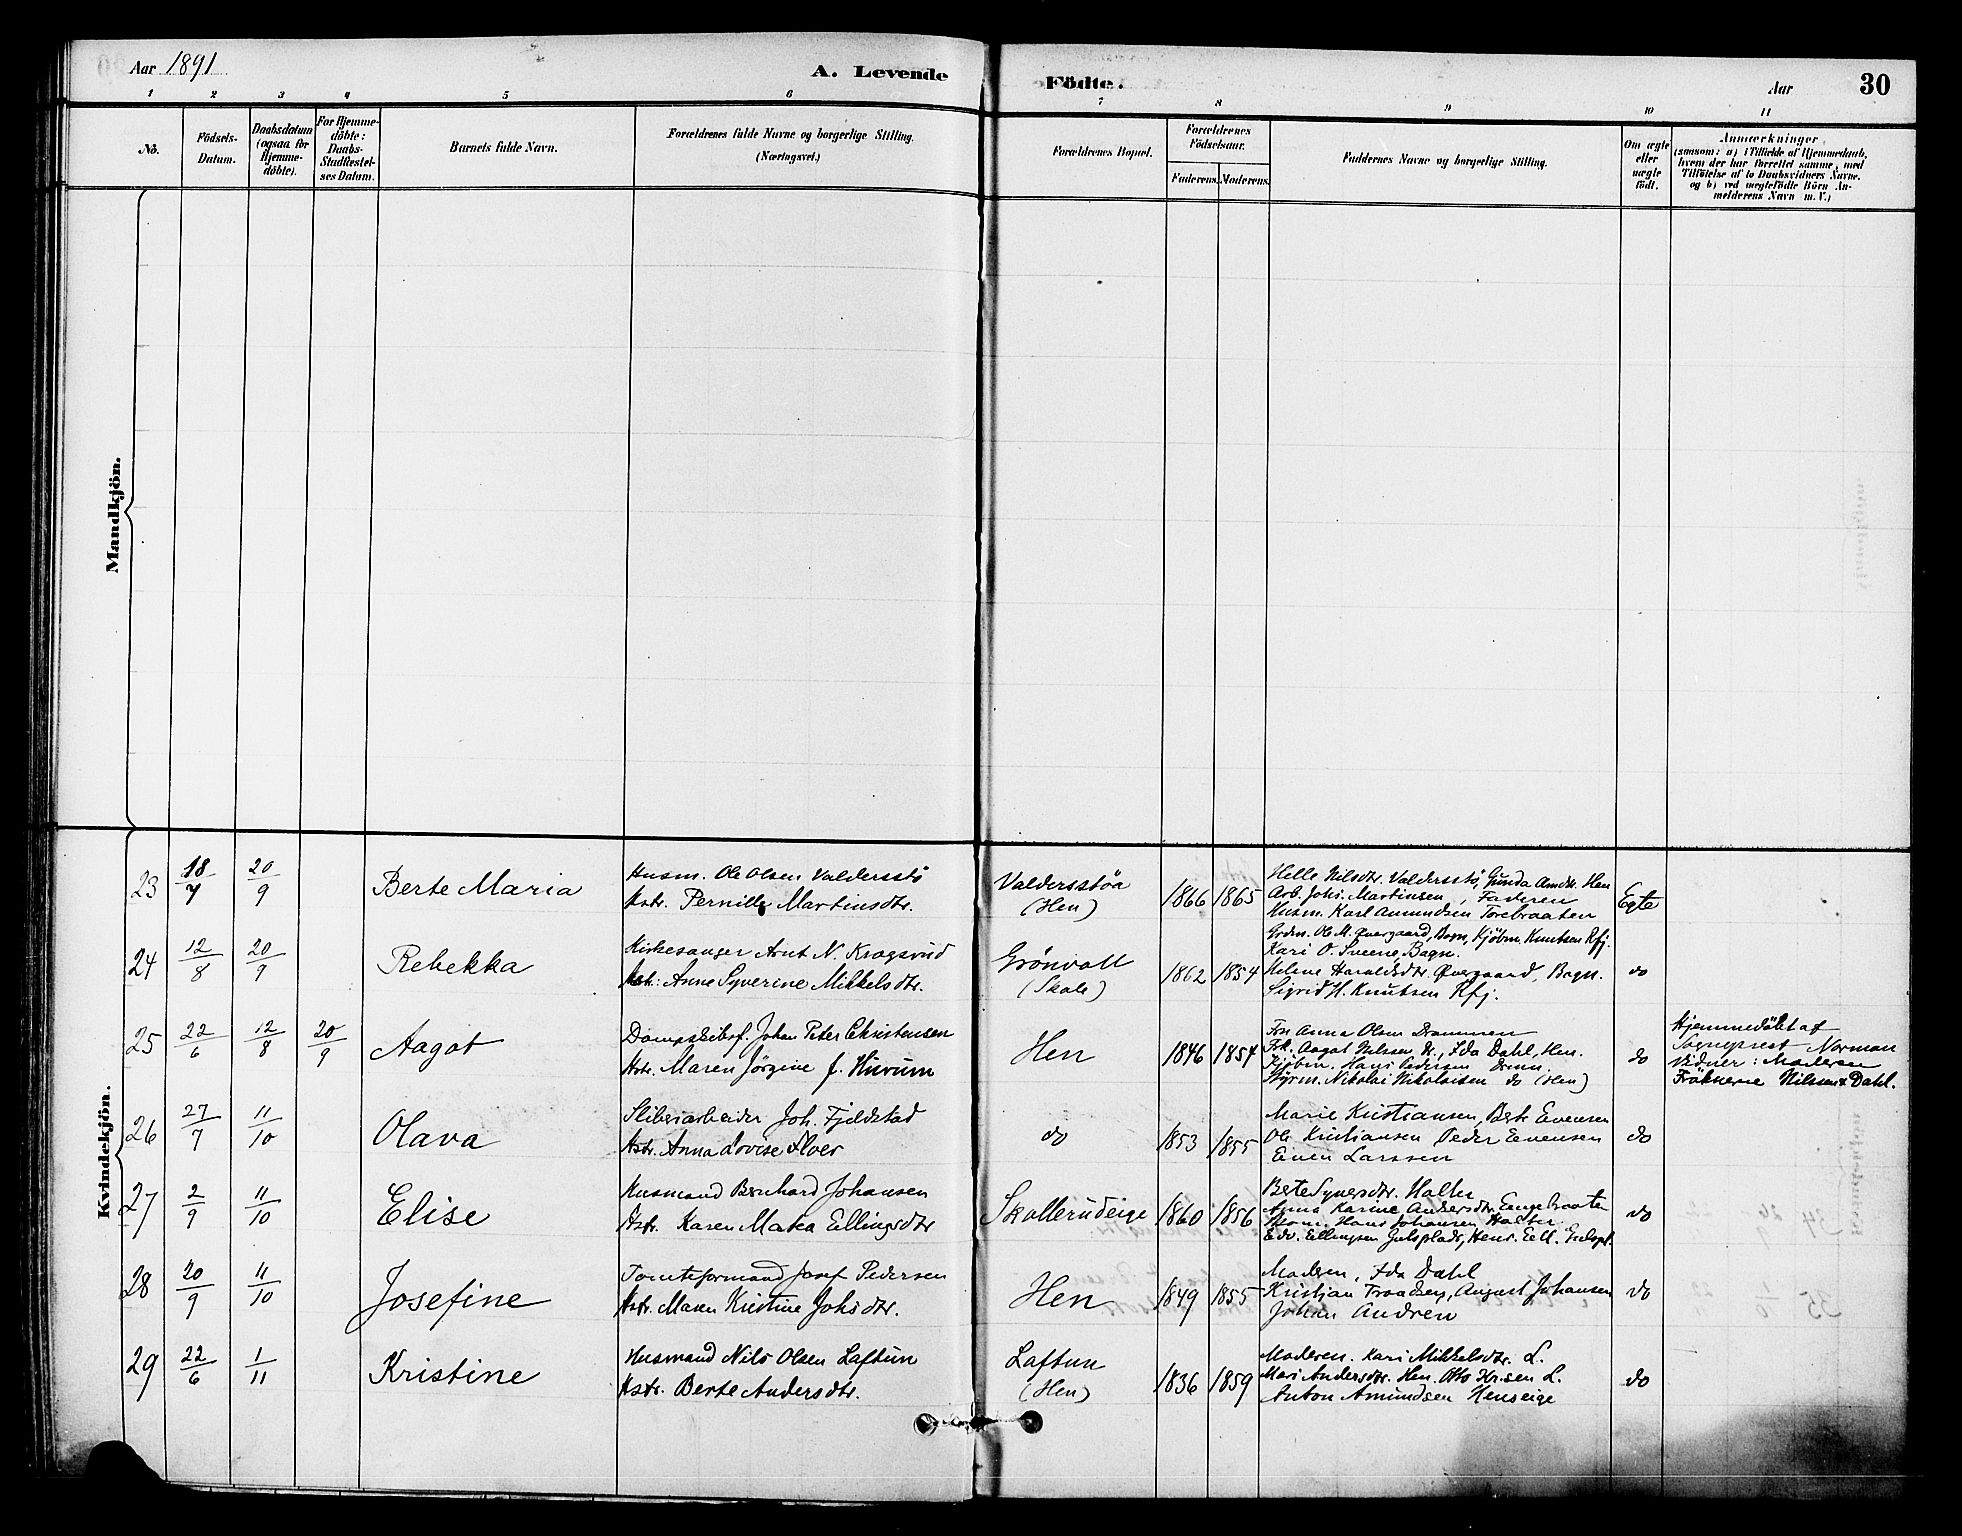 Aar 1891
A. Levende
Födte.
Aar
30
1 2 3 4 5 6 7 8 9 10 11
No.
Födsels-
Datum.
Daabsdatum
(ogsaa for
Hjemme-
döbte).
For Hjemme-
döbte:
Daabs-
Stadfæstel-
ses Datum.
Barnets fulde Navn.
Forældrenes fulde Navne og borgerlige Stilling.
(Næringsvei.)
Forældrenes Bopæl.
Forældrenes
Födselsaar.
Faderens. Moderens.
Faddernes Navne og borgerlige Stilling.
Om ægte
eller
uægte
födt.
Anmærkninger
(saasom: a) i Tilfælde af Hjemmedaab,
hvem der har forrettet samme, med
Tilföielse af to Daabsvidners Navne.
og b) ved uægtefödte Börn An-
melderens Navn m.V.)
Mandkjön.
Kvindekjön.
23 18/7 20/9 Berte Maria
Husm. Ole Olsen Valdersstö
Hstr. Pernille Martinsdtr.
Valdersstöa
(Hen)
1866 1865
Helle Nilsdtr. Valdersstö, Gunda Amdtr. Hen
Arb. Johs. Martinsen, Faderen
Husm. Karl Amundsen Torebraaten
Egte
24 12/8 20/9 Rebekka
Kirkesanger Arnt N. Kragsrud
Hstr. Anne Syverine Mikkelsdtr.
Grönvoll
(Skole)
1862 1854
Grdm. Ole M. Øvergaard, Bagn, Kjøbm. Knutsen Rfj.
Kari O. Sveene Bagn.
Helene Haraldsdtr. Øvergaard, Bagn.
Sigrid H. Knutsen Rfj.
do
25 22/6 12/8 20/9 Aagot
Dampskibsf. Johan Peter Christensen
Hstr. Maren Jörgine f. Hurum
Hen
1846 1854
Fru Anna Olsen Drammen
Frk. Aagot Nilsen H., Ida Dahl, Hen.
Kjöbm. Hans Pedersen Dramn.
Styrm. Nikolai Nikolaisen do (Hen)
do
Hjemmedöbt af
Sogneprest Norman
Vidner: Moderen
Fröknerne Nilsen & Dahl.
26 27/7 11/10 Olava
Sliberiarbeider Joh. Fjeldstad
Hstr. Anna Lovise
do
1853 1855
Marie Kristiansen, Berte Evensen
Ole Kristiansen Peder Evensen
Even Larssen
do
27 2/9 11/10 Elise
Husmand Bernhard Johansen
Hstr. Karen Matea Ellingsdtr
Skollerudeige
1860 1856
Berte Syversdtr. Halten
Anna Karine Andersdtr. Engebraaten
Hans Johansen
Edv. Ellingsen Gulsplads, Henr. Ell. Gulspl.
do
28 20/9 11/10 Josefine
Tomteformand Josef Pedersen
Hstr. Maren Kristine Johsdtr.
Hen
1849 1855
Moderen, Ida Dahl
Kristian Frandsen, August Johansen
Johan Andren
do
29 22/6 1/11 Kristine
Husmand Nils Olsen Laftun
Hstr. Berte Andersdtr.
Laftun
(Hen)
1836 1859
Moderen. Kari Mikkelsdtr. L.
Mari Andersdtr. Hen. Otto Kr.sen L.
Anton Amundsen Henseige
do